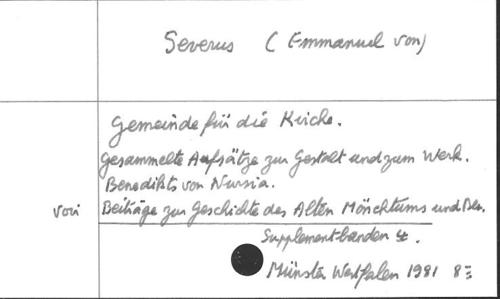 Severus ( Emmanuel von)
Gemeinde für die Kirche.
Gesammelte Aufsätze zur Gestalt und zum Werk.
Benedikts von Nursia.
voir Beiträge zur Geschichte des Alten Mönchtums und Ben.
Supplementbanden 4.
Münster Westfalen 1981 8=